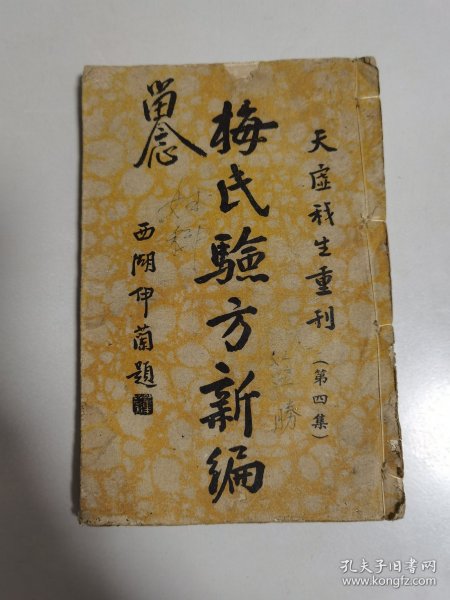 天虚我生重刊（第四集）
梅氏驗方新編
留念
西湖伊蘭題
勝
孔夫子旧书网
www.kongfz.com